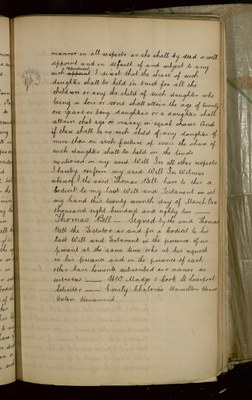 manner in all respects as she shall by deed or will
appoint and in default of and subject to any
such I direct that the share of such
daughter shall be held in trust for all the
children or any the child of such daughter who
being a son or sons shall attain the age of twenty
one years or being daughters or a daughter shall
attain that age or marry in equal shares And
if there shall be no such child of any daughter of
mine then on such failure of issue the share of
such daughter shall be held on the trusts
mentioned in my said Will In all other respects
I hereby confirm my said Will In Witness
whereof I the said Thomas Bell have to this a
Codicil to my last Will and Testament set
my hand this twenty seventh day of March One
thousand eight hundred and eighty
Thomas Bell — Signed by the said Thomas
Bell the Testator as and for a Codicil to his
last Will and Testament in the presence of us
present at the same time who at his request
in his presence and in the presence of each
other have hereunto subscribed our names as
witnesses — 2 Cook St Liverpool
Solicitor — Emily Hamilton House